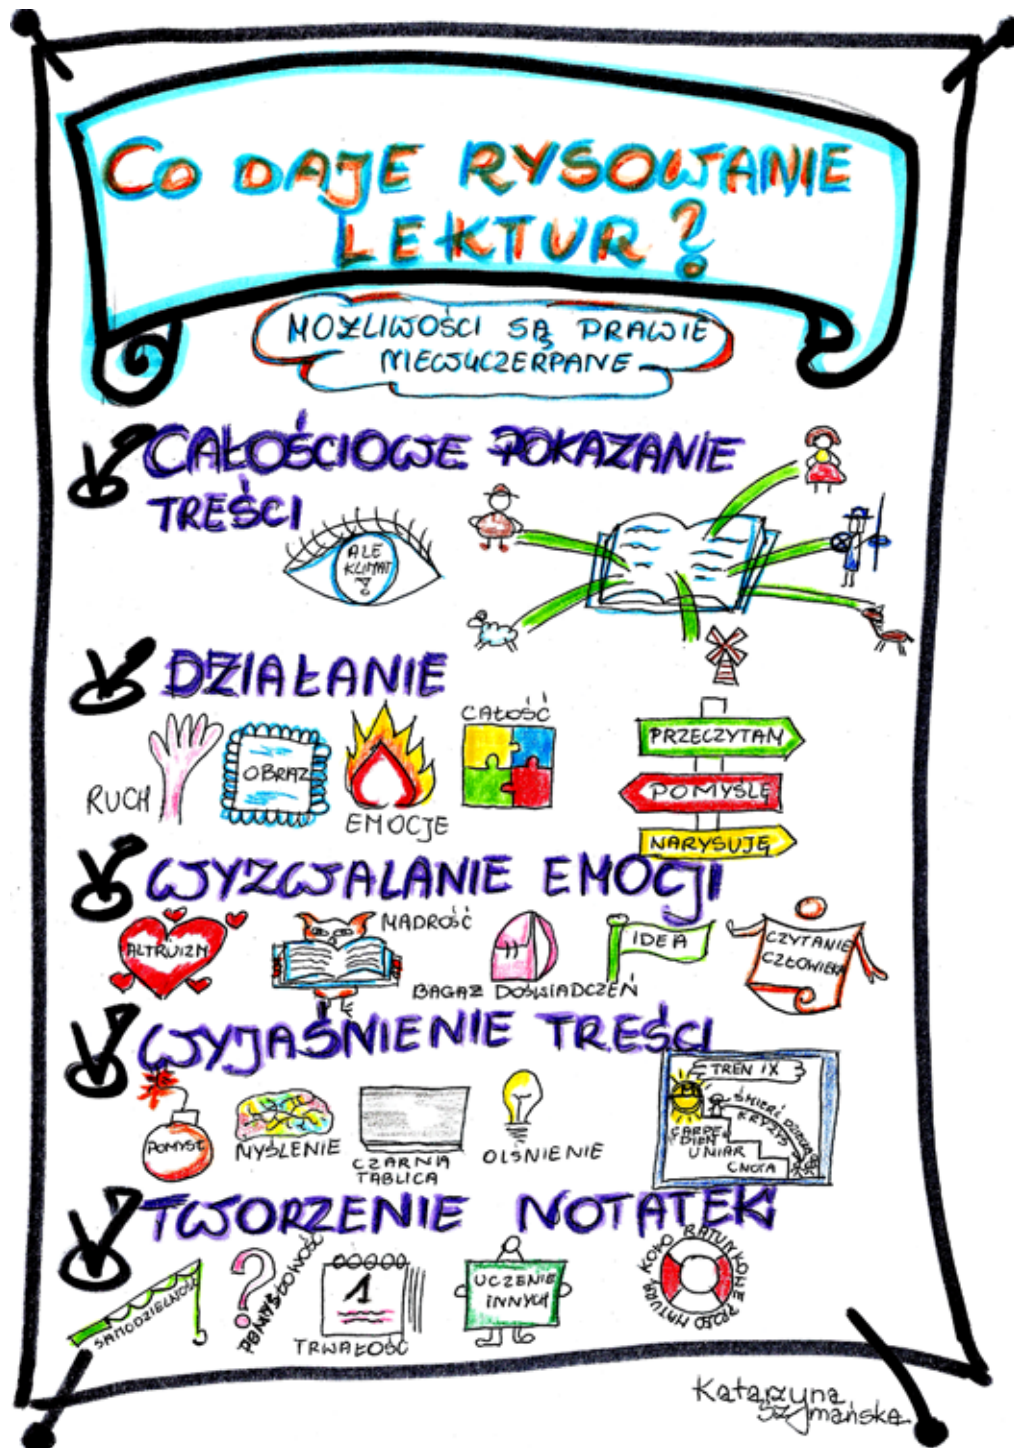 CO DAJE RYSOWANIE
LEKTUR?
MOŻLIWOŚCI SĄ PRAWIE
NIEWYCZERPANE
CAŁOŚCIOWE POKAZANIE
TREŚCI
ALE
KLIMAT
!
DZIAŁANIE
RUCH
OBRAZ
EMOCJE
CAŁOŚĆ
PRZECZYTAM
POMYŚLĘ
NARYSUJĘ
WYZWALANIE EMOCJI
ALTRUIZM
MĄDROŚĆ
BAGAŻ DOŚWIADCZEŃ
IDEA
CZYTANIE
CZŁOWIEKA
WYJAŚNIENIE TREŚCI
POMYSŁ
MYŚLENIE
CZARNA
TABLICA
OLŚNIENIE
TREN IX
ŚMIERĆ DZIECKA
KRYZYS
CARPE
DIEM
UMIAR
CNOTA
TWORZENIE NOTATEK
SAMODZIELNOŚĆ
?
POMYSŁOWOŚĆ
1
TRWAŁOŚĆ
UCZENIE
INNYCH
KOŁO RATUNKOWE PRZED MATURĄ
Katarzyna
Szymańska